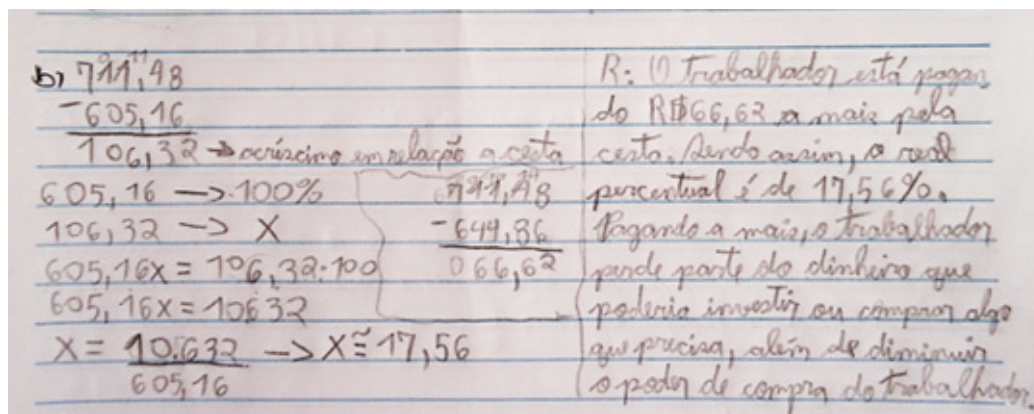 b) 711,48
-605,16
106,32 → acréscimo em relação a cesta
605,16 → 100%
106,32 → X
605,16x = 106,32·100
605,16x = 10632
X = 10.632 → X ≅ 17,56
605,16
711,48
-644,86
066,62
R: O trabalhador está pagan
do R$66,62 a mais pela
cesta. Sendo assim, o real
percentual é de 17,56%.
Pagando a mais, o trabalhador
perde parte do dinheiro que
poderia investir ou comprar algo
que precisa, além de diminuir
o poder de compra do trabalhador.